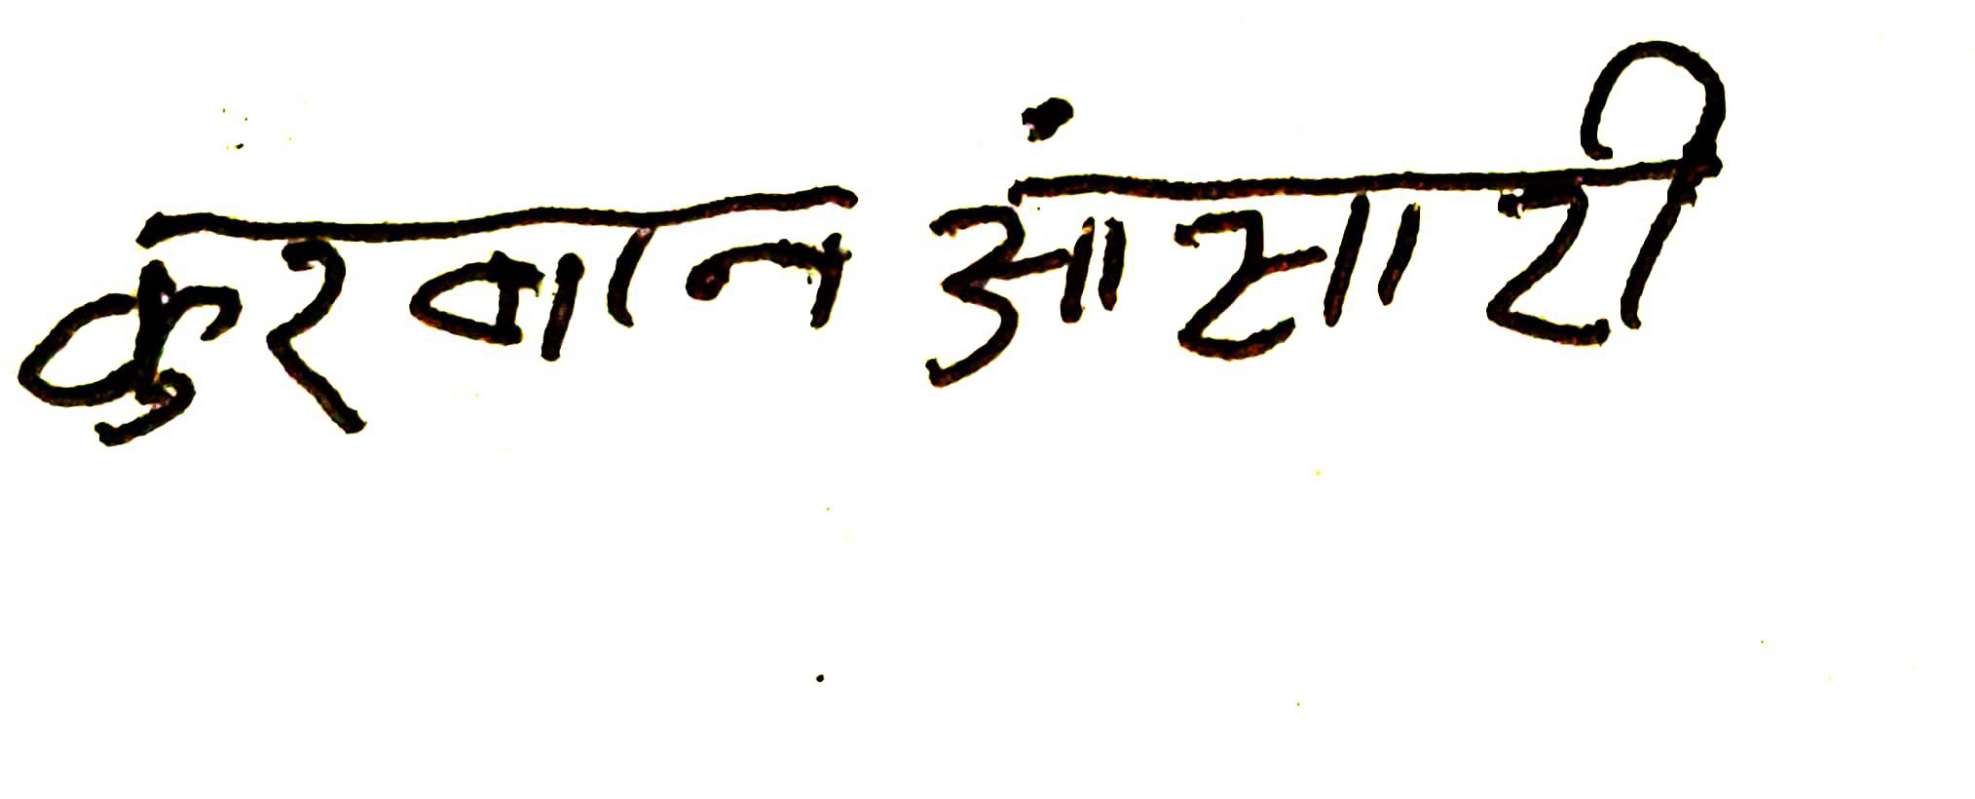 कुरबान आंसारी